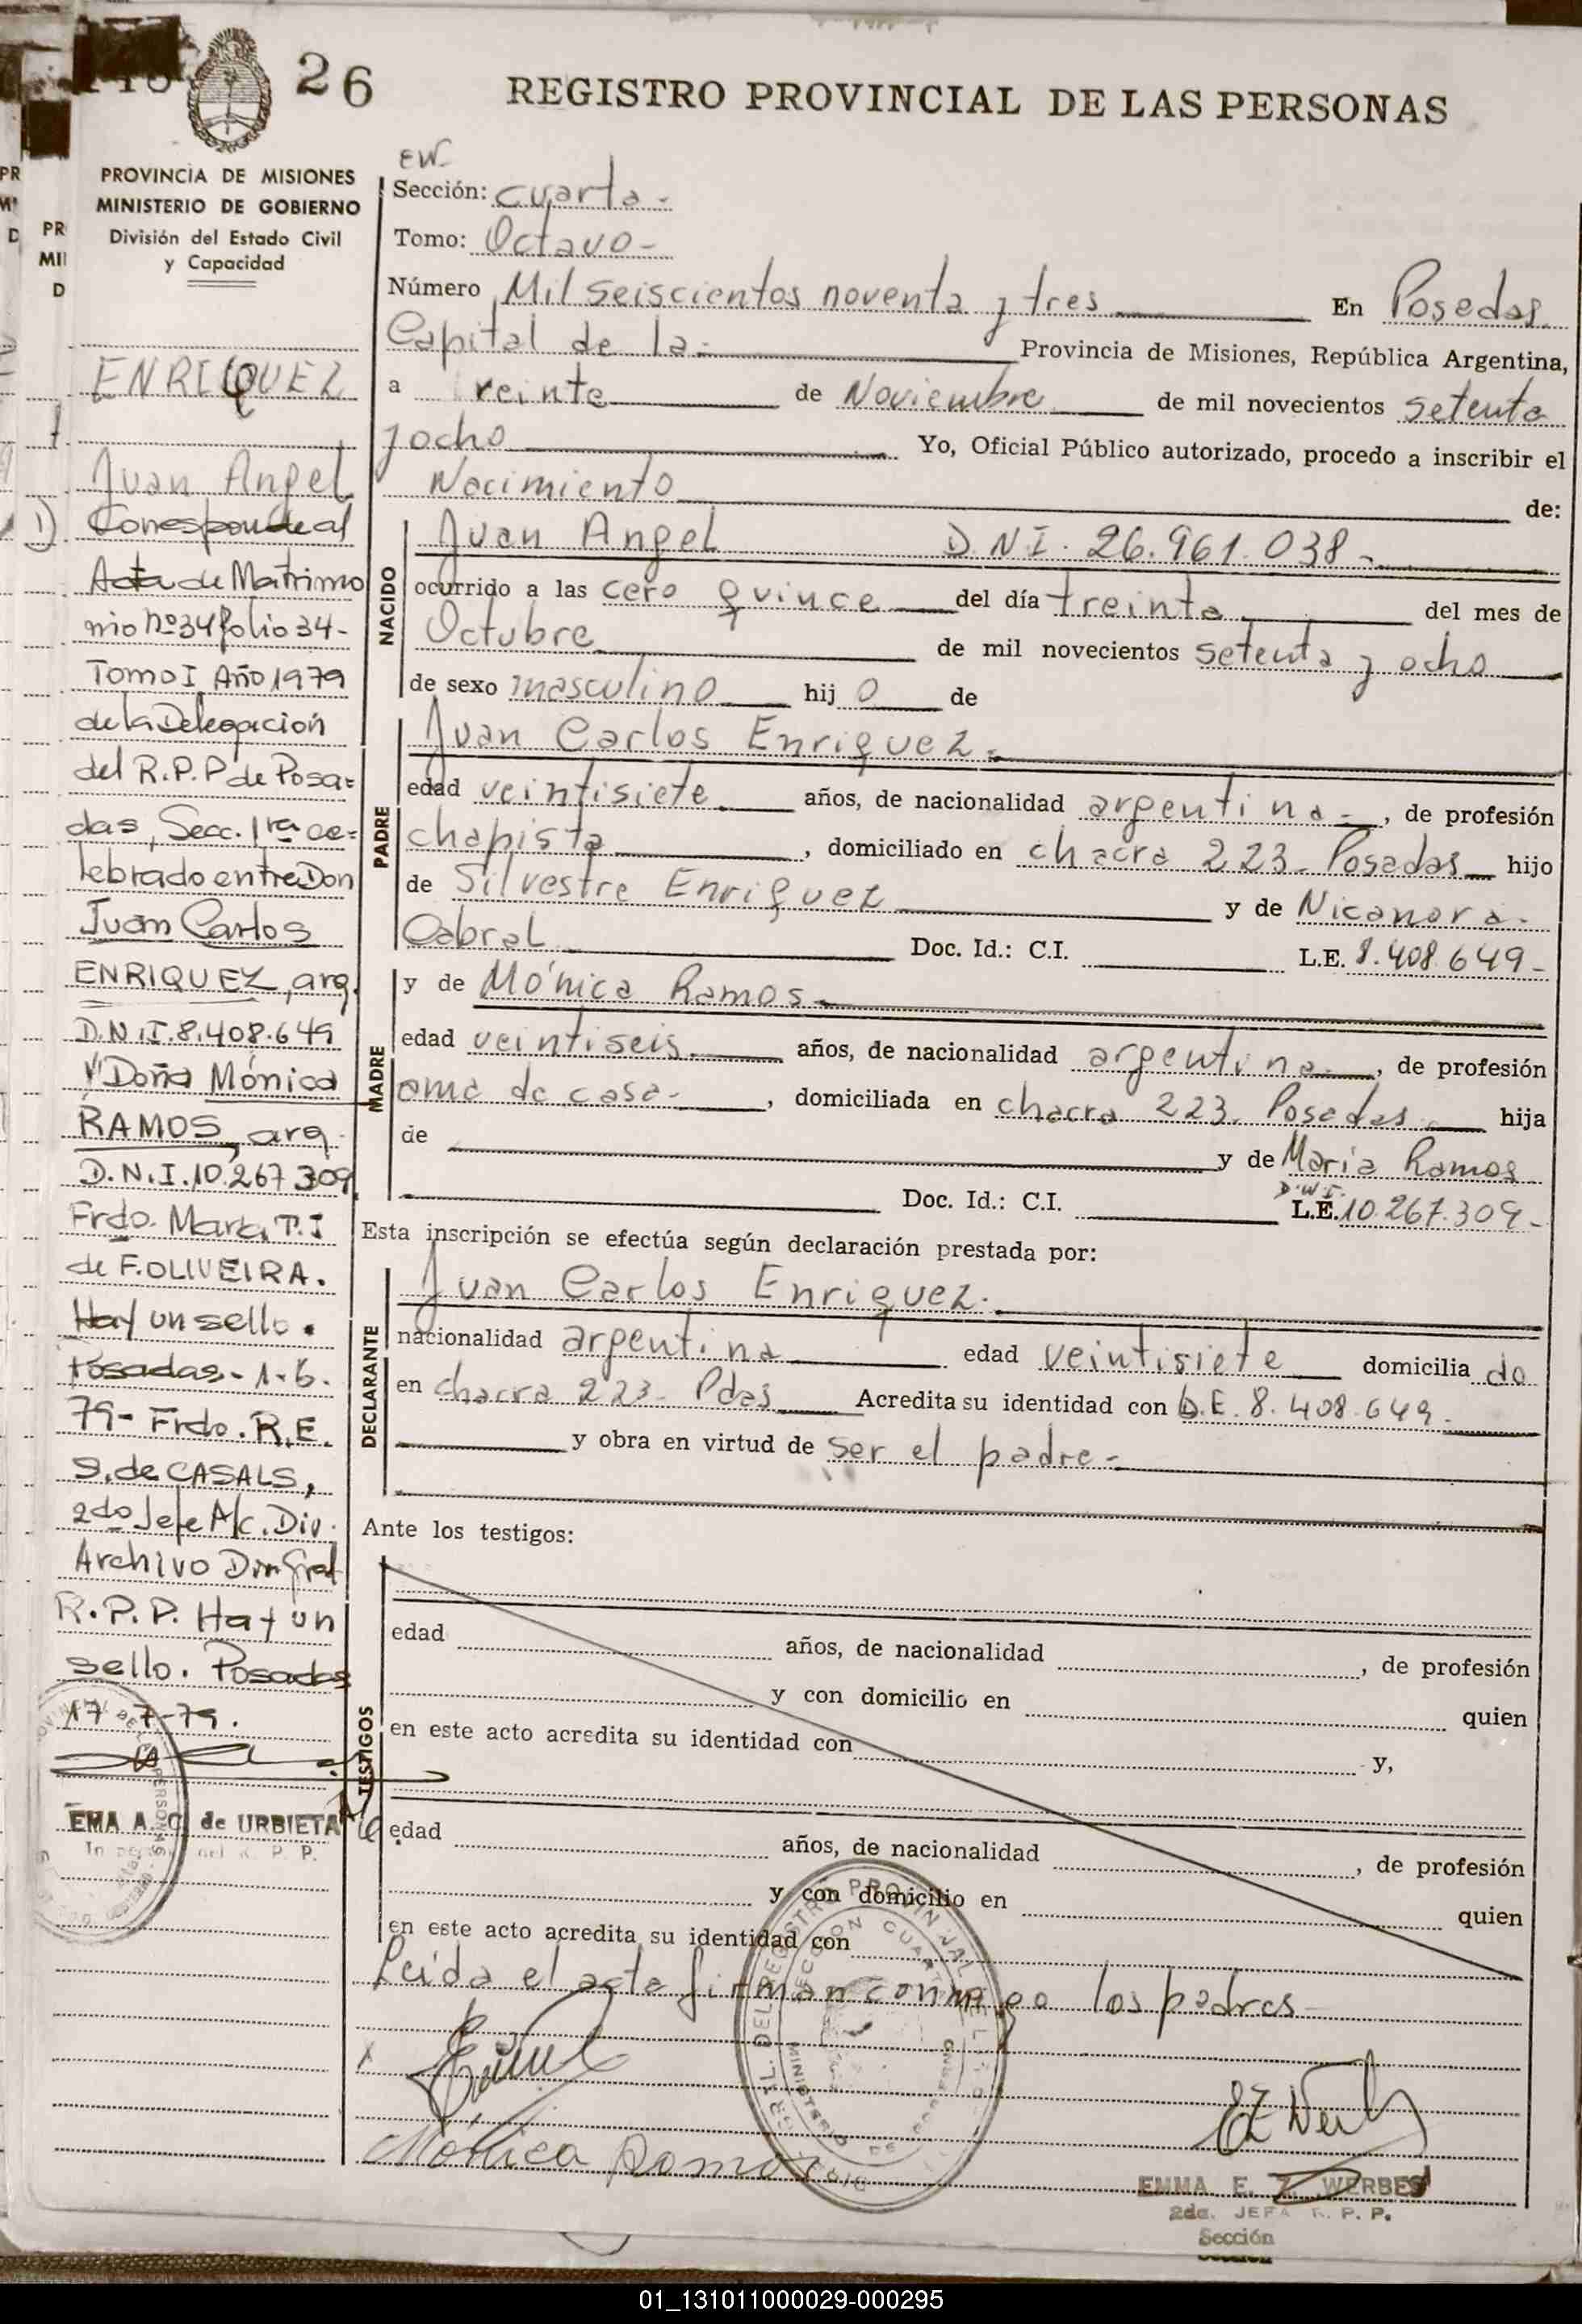 26
REGISTRO PROVINCIAL DE LAS PERSONAS
PROVINCIA DE MISIONES
MINISTERIO DE GOBIERNO
División del Estado Civil
y Capacidad
ENRIQUEZ
Juan Angel
1) Corresponde al
Acta de Matrimo
nio nº 34 folio 34-
Tomo I Año 1979
de la Delegación
del R.P.P de Posa=
das, Secc. 1ra ce=
lebrado entre Don
Juan Carlos
ENRIQUEZ, arg.
D.N.I. 8.408.649
y Doña Mónica
RAMOS, arg.
D.N.I. 10.267.309
Frdo. Marta T. I
de F. OLIVEIRA.
Hay un sello.
Posadas - 1-6-
79- Frdo. R.E.
S. de CASALS,
2do Jefe A/c. Div.
Archivo Dir. Gral
R.P.P. Hay un
sello. Posadas
17-7-79.
EMA A. C. de URBIETA
EW
Sección: cuarta -
Tomo: Octavo -
Número Mil seiscientos noventa y tres En Posadas
Capital de la - Provincia de Misiones, República Argentina,
a treinta de Noviembre de mil novecientos setenta
y ocho Yo, Oficial Público autorizado, procedo a inscribir el
Nacimiento de:
NACIDO
Juan Angel D.N.I. 26.961.038 -
ocurrido a las cero quince del día treinta del mes de
Octubre de mil novecientos setenta y ocho
de sexo masculino hij o de
PADRE
Juan Carlos Enriquez -
edad veintisiete años, de nacionalidad argentina -, de profesión
chapista, domiciliado en chacra 223 - Posadas hijo
de Silvestre Enriquez y de Nicanora -
Cabral Doc. Id.: C.I. L.E. 8.408.649 -
MADRE
y de Mónica Ramos -
edad veintiseis años, de nacionalidad argentina, de profesión
ama de casa -, domiciliada en chacra 223 - Posadas hija
de y de María Ramos
Doc. Id.: C.I. D.N.I. L.E. 10.267.309 -
Esta inscripción se efectúa según declaración prestada por:
DECLARANTE
Juan Carlos Enriquez -
nacionalidad argentina edad veintisiete domicilia do
en chacra 223 - Pdas Acredita su identidad con L.E. 8.408.649 -
y obra en virtud de ser el padre -
Ante los testigos:
TESTIGOS
edad años, de nacionalidad, de profesión
y con domicilio en quien
en este acto acredita su identidad con y,
edad años, de nacionalidad, de profesión
y con domicilio en quien
en este acto acredita su identidad con
Leida el acta firman conmigo los padres -
Mónica Ramos
EMMA E. Z. WERBES
2da. JEFA R. P. P.
Sección
01_131011000029-000295